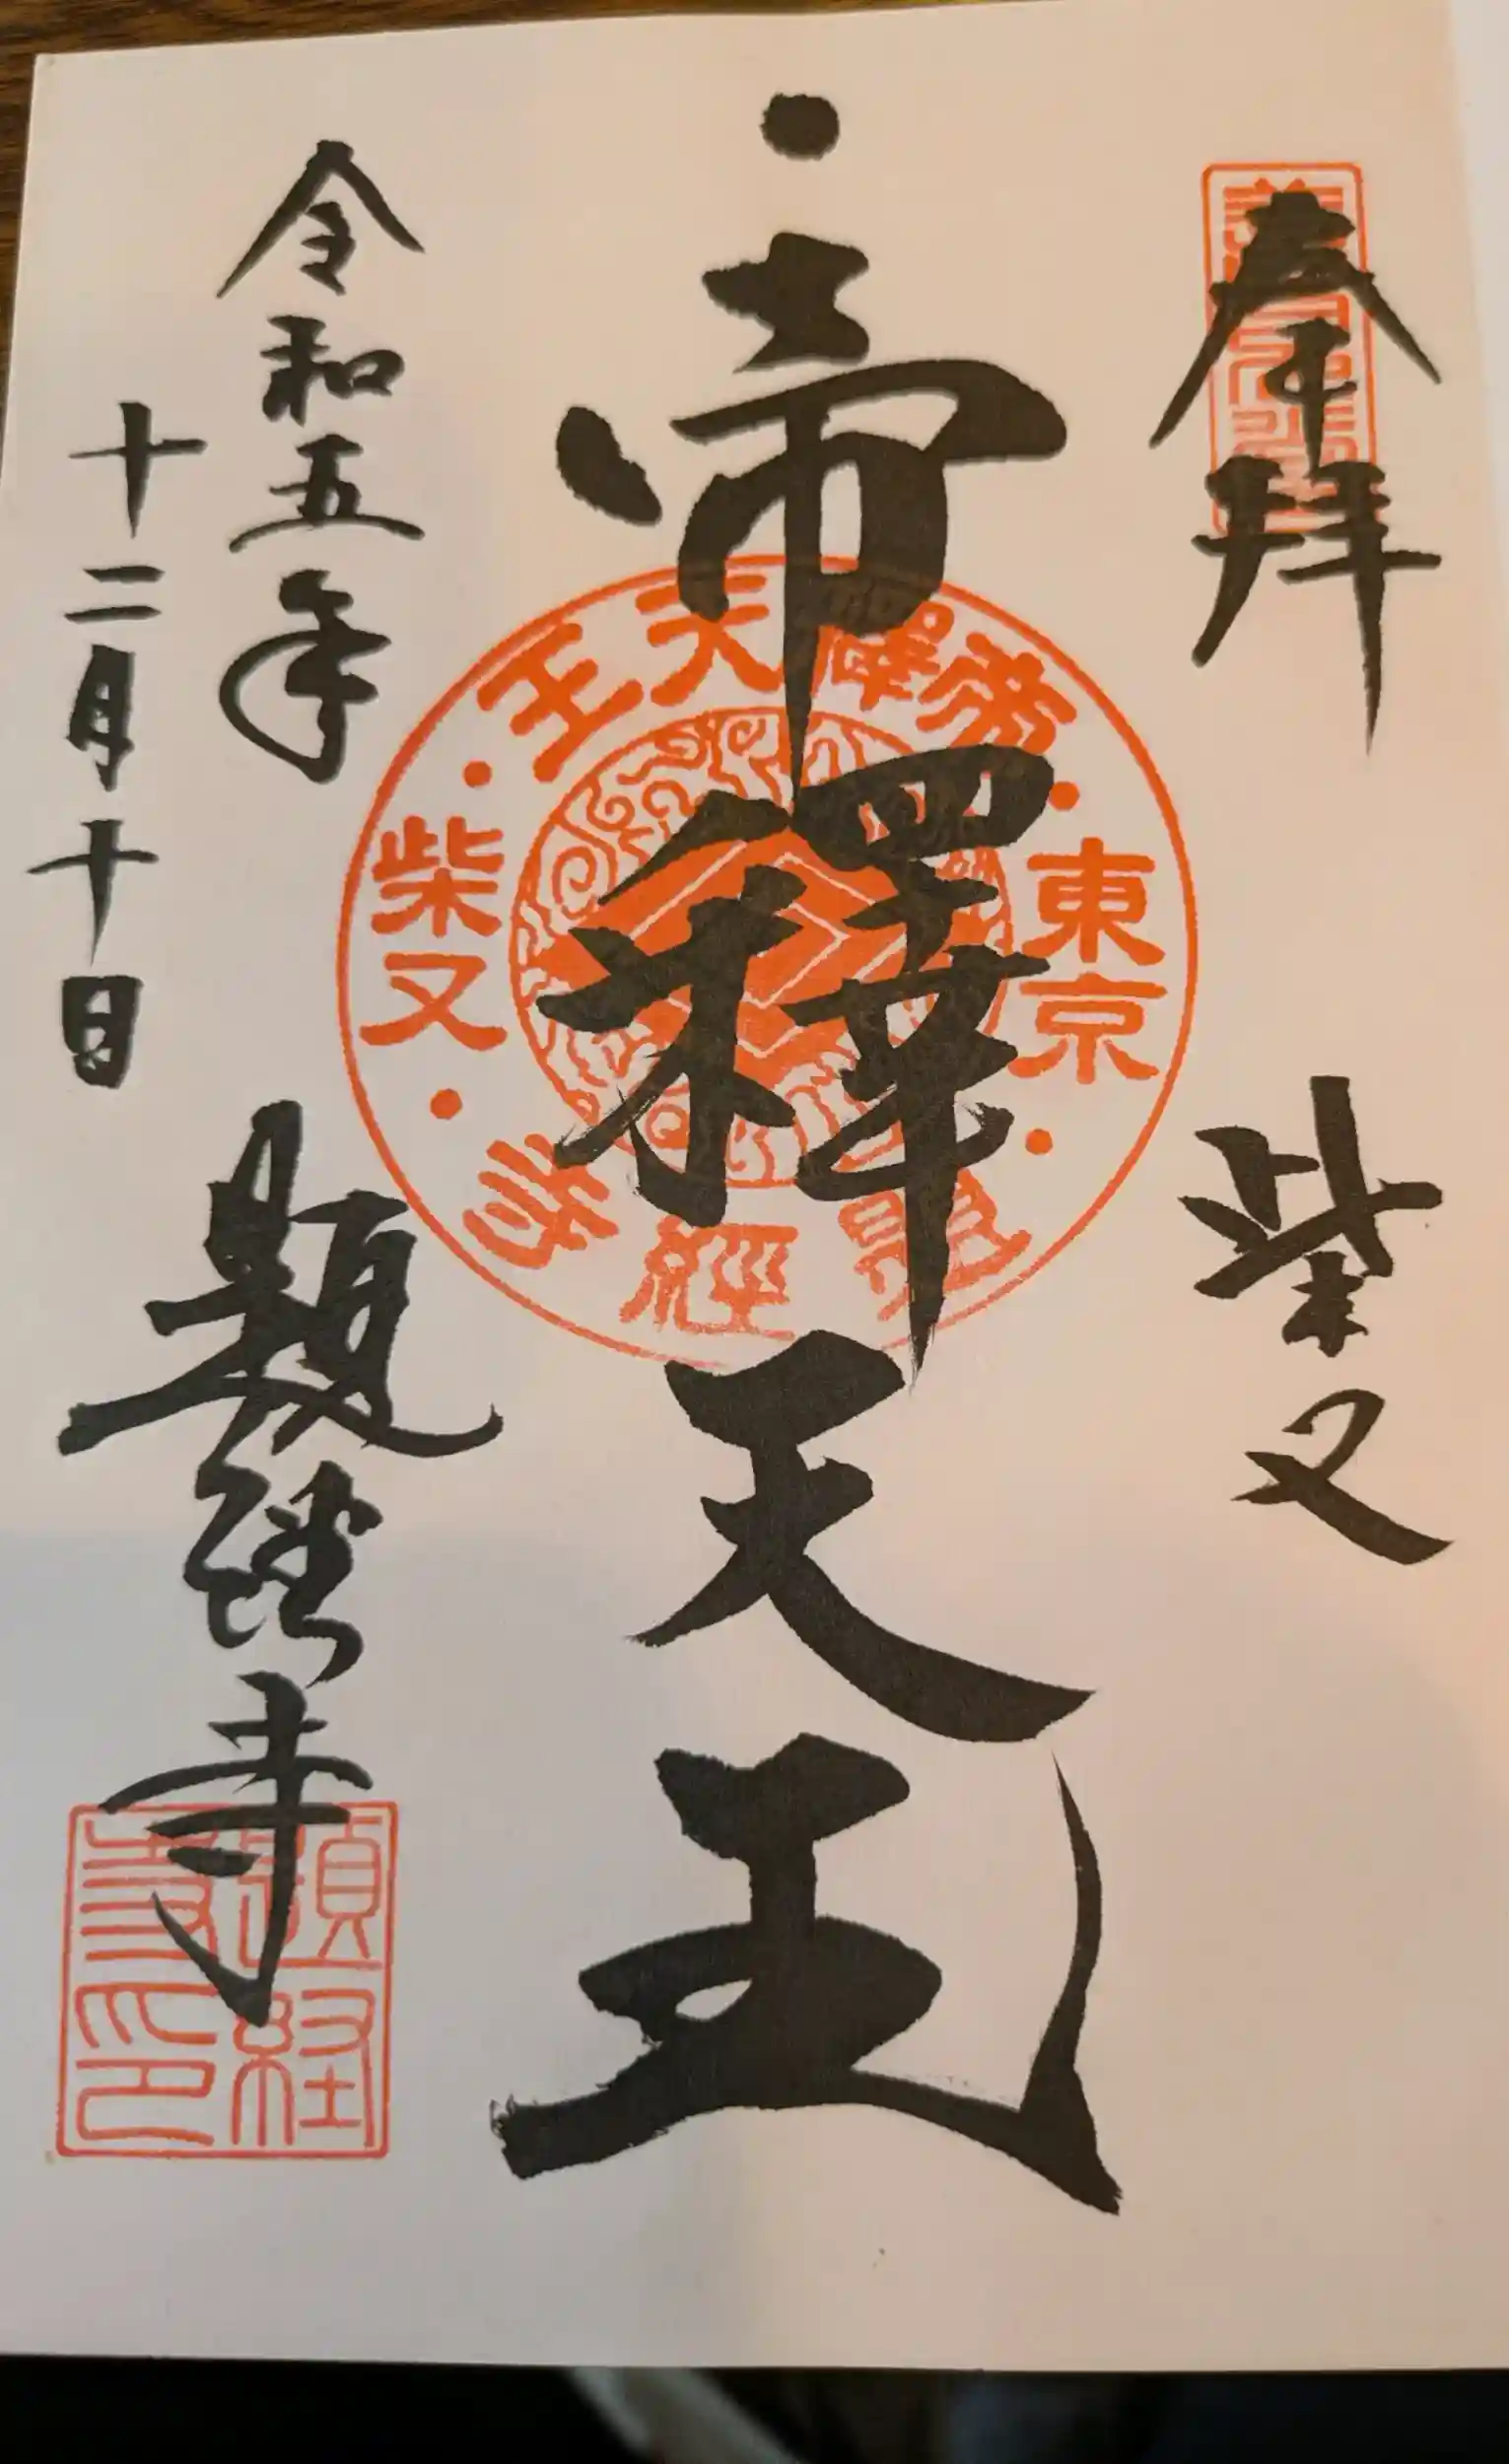 奉拝
柴又
帝釋天王
令和五年
十二月十日
題経寺
帝釋天王
東京
柴又
題經寺
題経寺印